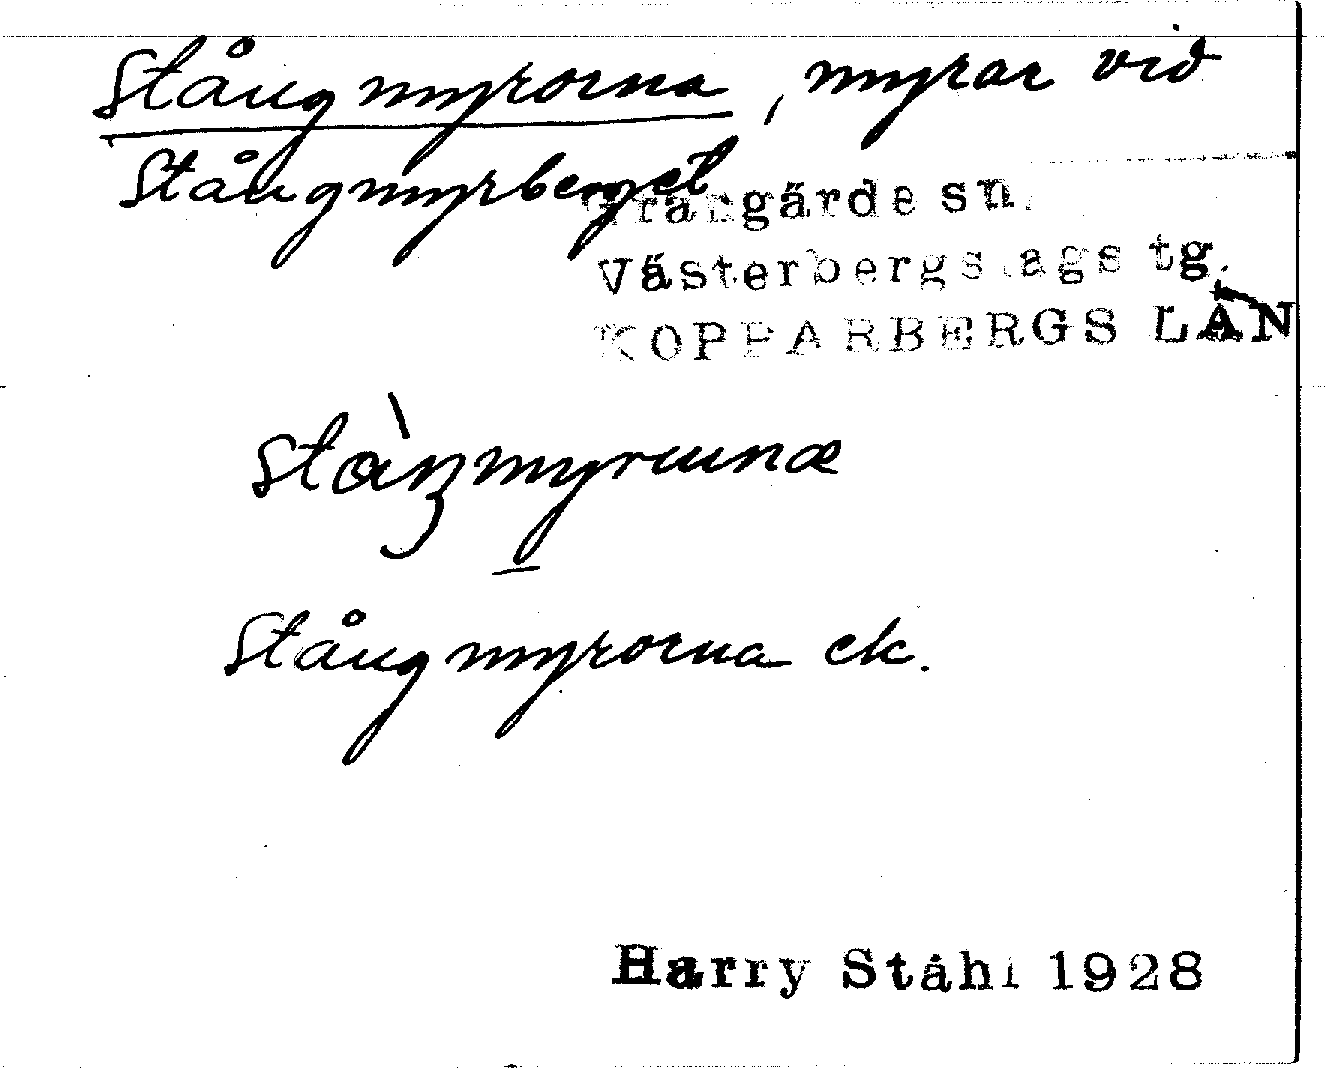 Stångmyrorna, myrar vid
Stångmyrberget
Grangärde sn.
Västerbergslags tg.
KOPPARBERGS LÄN
Stångmyrorna ek.
Harry Ståhl 1928